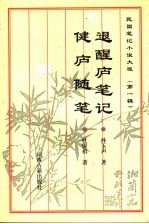 民国笔记小说大观 第一辑
退醒庐笔记
孙玉声 著
健庐随笔
著
山西古籍出版社